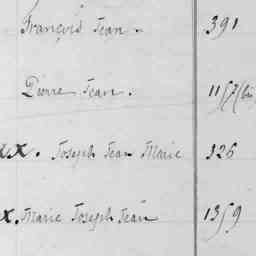 François Jean. 391
Pierre Jean. 1157 (bis
xx. Joseph Jean Marie 326
x. Marie Joseph Jean 1359